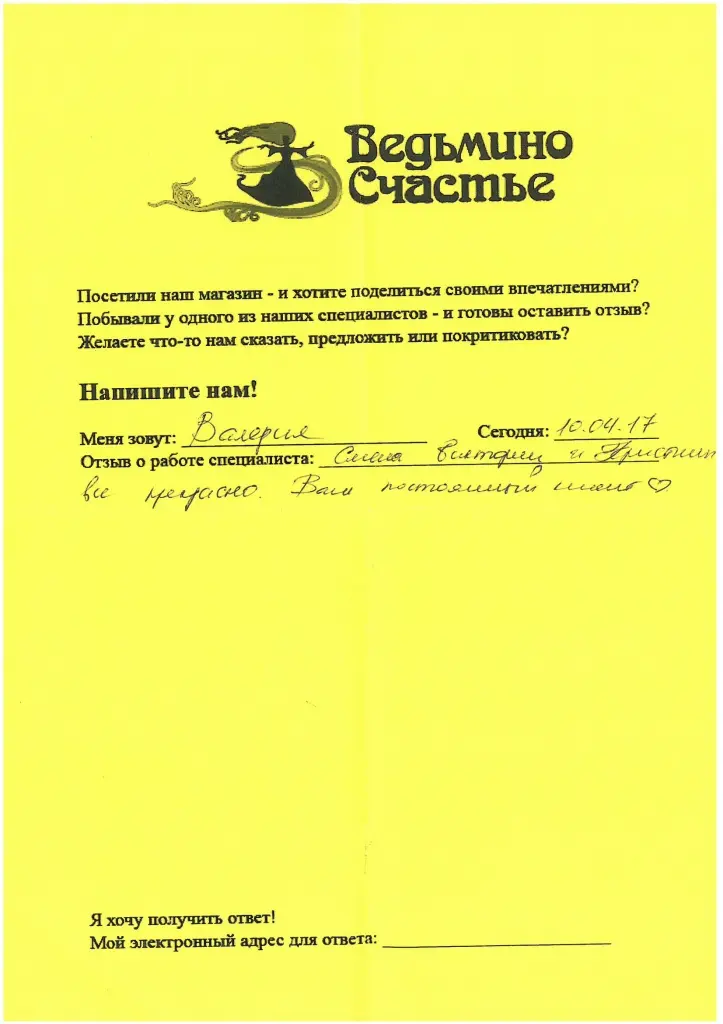 Ведьмино
Счастье
Посетили наш магазин - и хотите поделиться своими впечатлениями?
Побывали у одного из наших специалистов - и готовы оставить отзыв?
Желаете что-то нам сказать, предложить или покритиковать?
Напишите нам!
Меня зовут: Валерия Сегодня: 10.04.17
Отзыв о работе специалиста: Смена Виктории и Кристины
все прекрасно. Ваш постоянный клиент ♡
Я хочу получить ответ!
Мой электронный адрес для ответа: